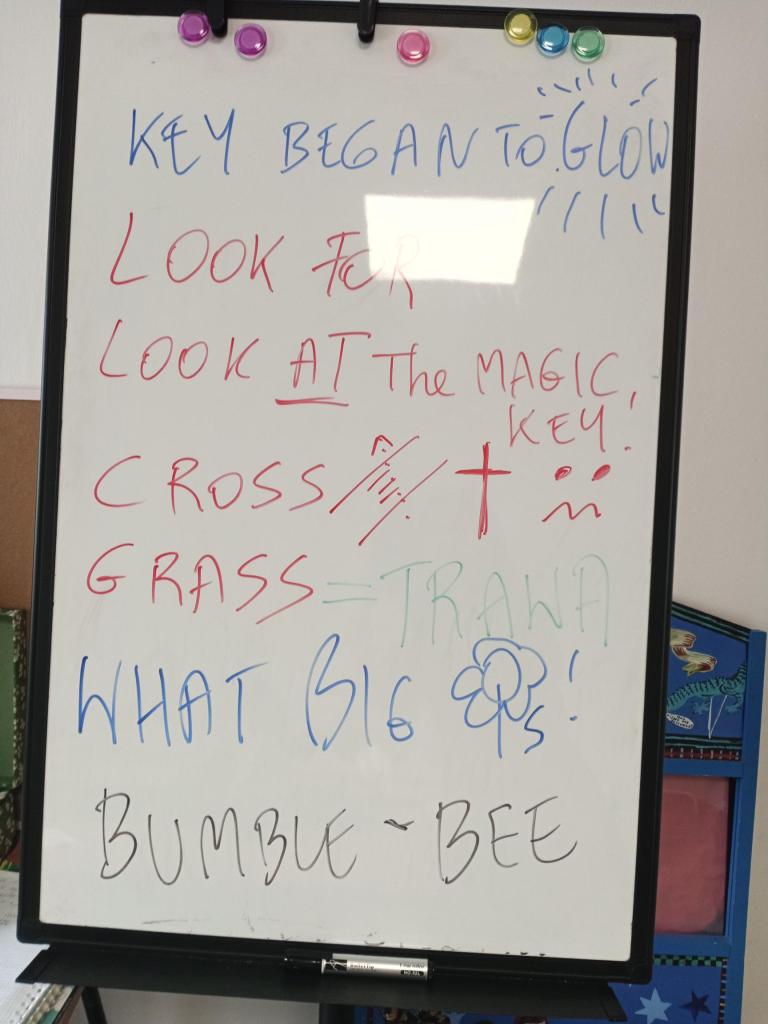 KEY BEGAN TO GLOW
LOOK FOR
LOOK AT The MAGIC
KEY!
CROSS
GRASS = TRAWA
WHAT BIG S!
BUMBLE-BEE